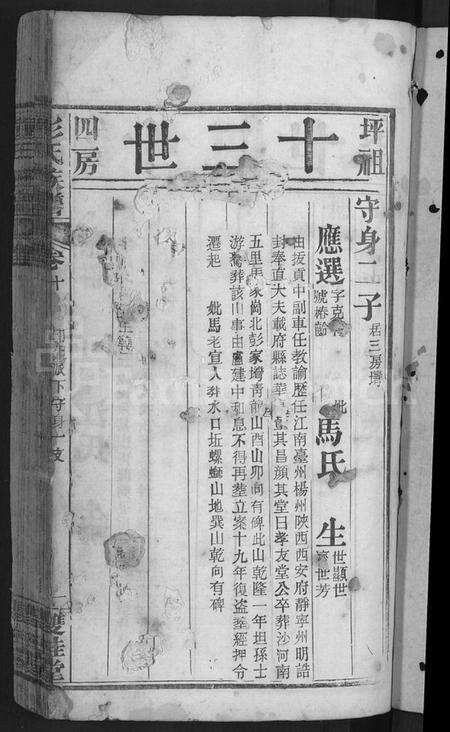 坪祖
十三世
四房
守身二子 居三房灣
應選 字克 號椿齡 妣馬氏 生 世顯世 濟世芳
由拔貢中副車任教諭歷任江南臺州楊州陝西西安府靜寧州明誥
封奉直大夫載府縣誌華 其昌顏其堂曰孝友堂公卒葬沙河南
五里馬家尚北彭家灣青龍山酉山卯向有碑此山乾隆一年坦孫士
游 葬該山事由盧建中和息不得再塟立案十九年復盜塟經押令
遷起 妣馬老宜人葬水口坵螺螄山地巽山乾向有碑
彭氏族譜
卷十
派下守身一支
雙桂堂